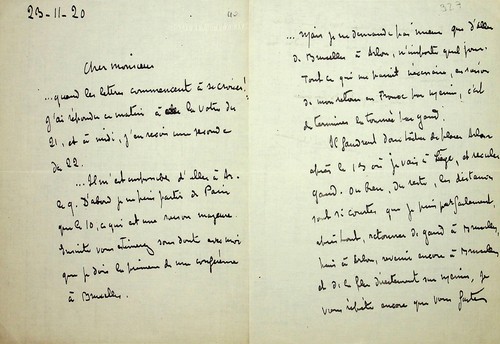 23-11-20
Cher monsieur
... quand les lettres commencent à se croiser!
J'ai répondu ce matin à la votre du
21, et à midi, j'en reçois une seconde
du 22.
... Il m'est impossible d'aller à Ar-
le 9. D'abord je ne puis partir de Paris
que le 10, ce qui est une raison majeure.
Ensuite vous estimerez sans doute avec moi
que je dois la primeur de ma conférence
à Bruxelles.
327
... Mais je ne demande pas mieux que d'aller
de Bruxelles à Arlon, n'importe quel jour.
Tout ce qui me paraît nécessaire, en raison
de mon retour en France par Mézin, c'est
de terminer la tournée par Gand.
Il faudrait donc tâcher de placer Arlon
après le 13 où je vais à Liège, et reculer
Gand. Ou bien, du reste, les distances
sont si courtes, que je puis parfaitement,
après tout, retourner de Gand à Bruxelles,
puis à Arlon, revenir encore à Bruxelles,
et de là filer directement sur Mézin. Je
vous répète encore que vous fassiez